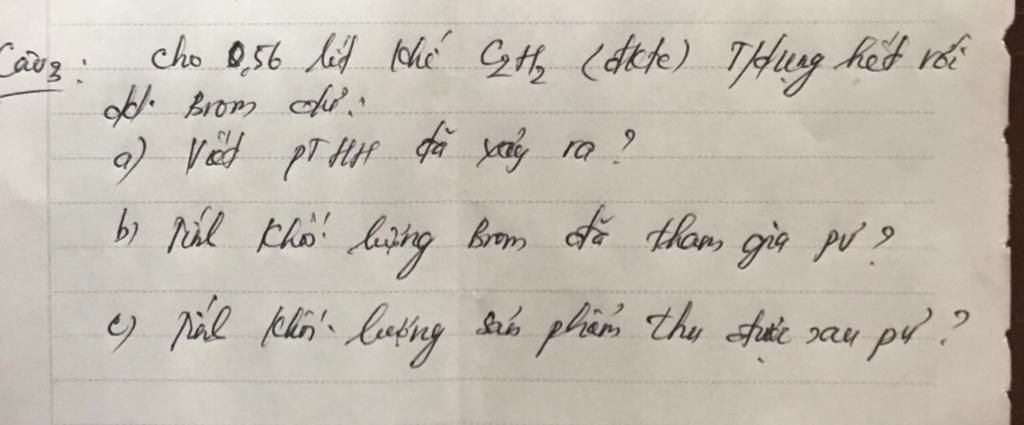 Câu 3: Cho 0,56 lít khí C₂H₂ (đktc) T/dụng hết với
dd Brom dư:
a) Viết PTHH đã xảy ra?
b) Tính khối lượng Brom đã tham gia pư?
c) Tính khối lượng sản phẩm thu được sau pư?